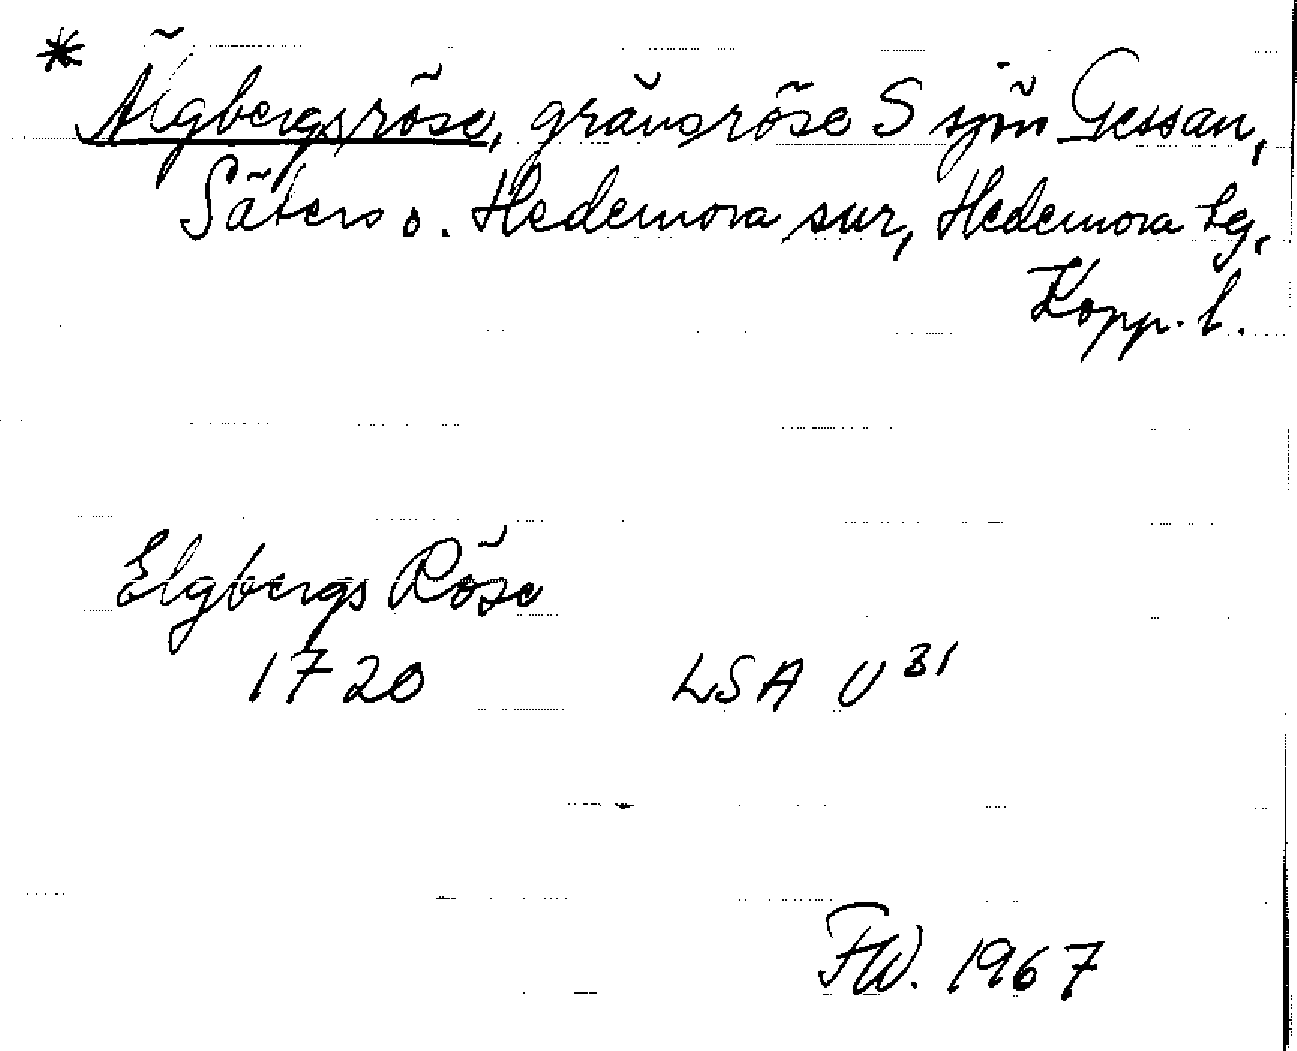 * Älgbergsröse, gränsröse S sjön Gessan,
Säters o. Hedemora snr, Hedemora tg,
Kopp. l.
Elgbergs Röse
1720 LSA U 31
FW. 1967